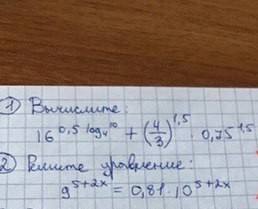 ① Вычислите:
16^{0,5 log₄ 10} + (4/3)^{1,5} · 0,75^{1,5}
② Решите уравнение:
9^{5+2x} = 0,81 · 10^{5+2x}